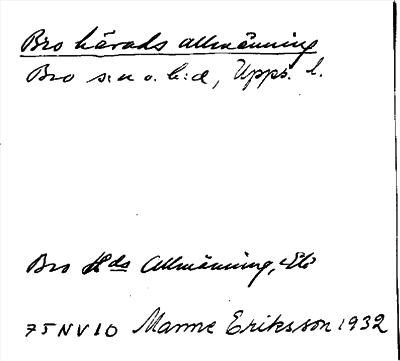 Bro härads allmänning
Bro s:n o. h:d, Upps. l.
Bro Hds Allmänning, Eb
75NV10 Manne Eriksson 1932